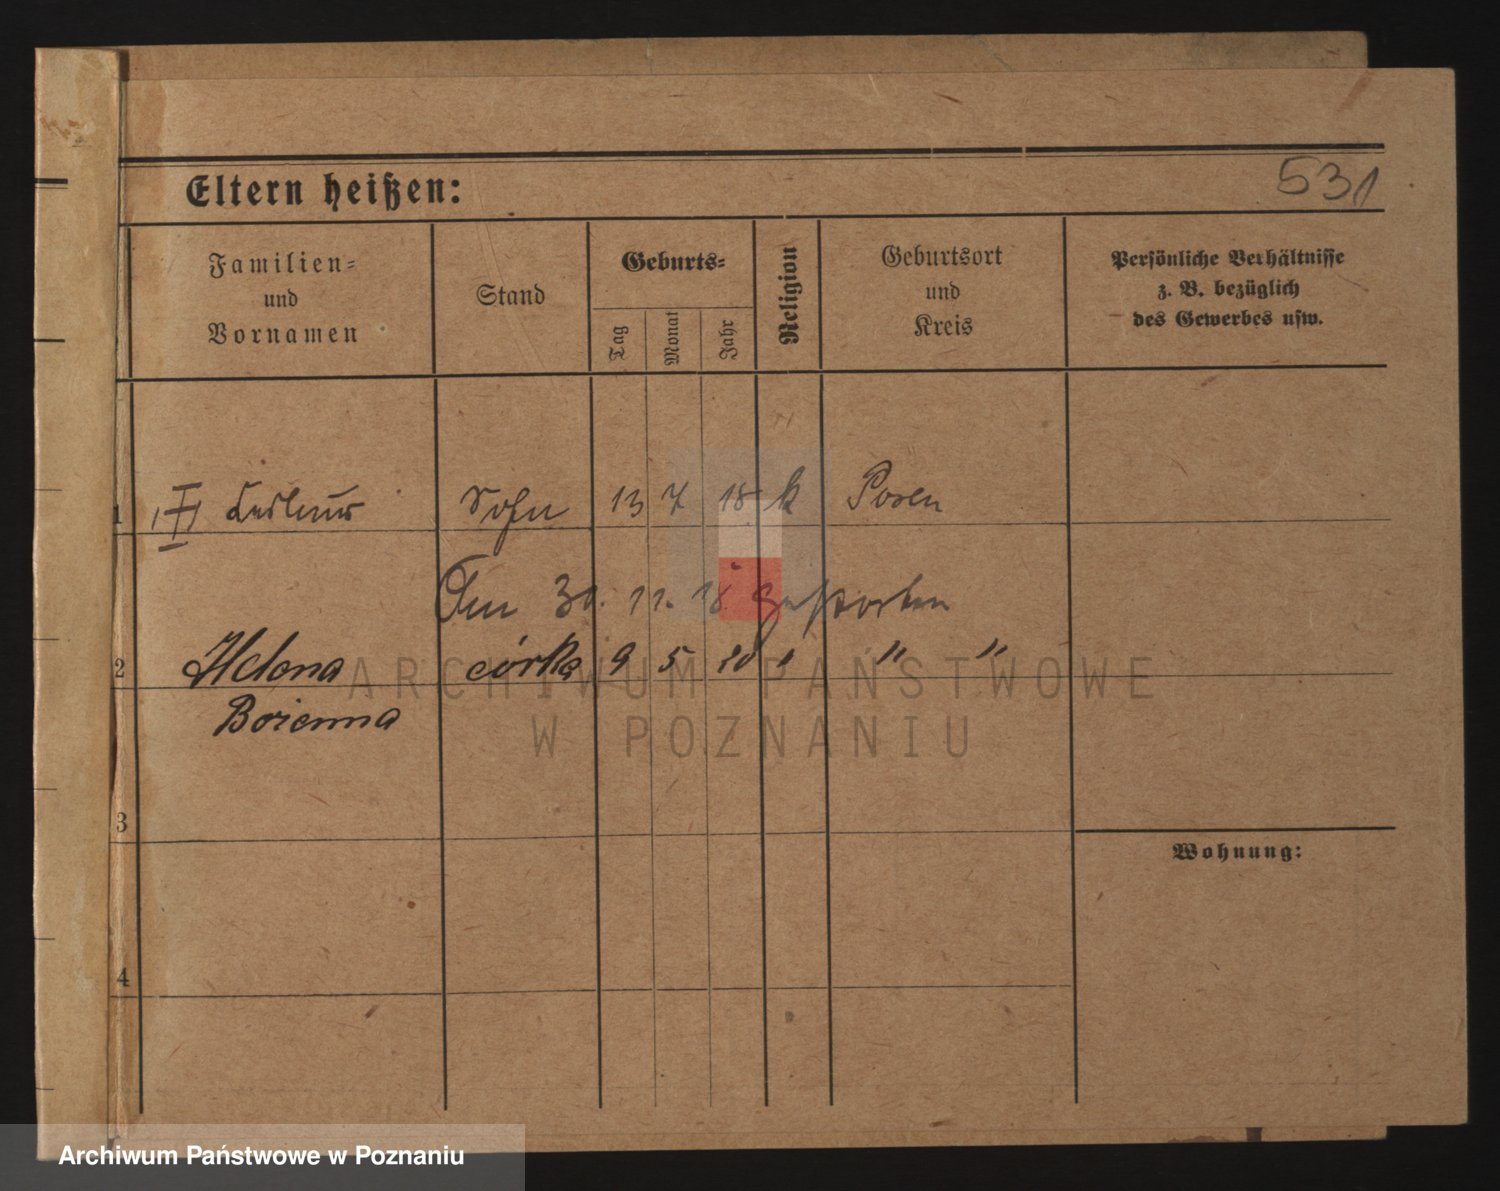 531
Eltern heißen:
Familien-
und
Vornamen
Stand
Geburts-
Tag
Monat
Jahr
Religion
Geburtsort
und
Kreis
Persönliche Verhältnisse
z. B. bezüglich
des Gewerbes usw.
1 Sohn 13 7 18 k Posen
Am 30. 11. 18 gestorben
2 Helena córka 9 5 20 " " "
Bożenna
3
4
Wohnung:
ARCHIWUM PAŃSTWOWE
W POZNANIU
Archiwum Państwowe w Poznaniu